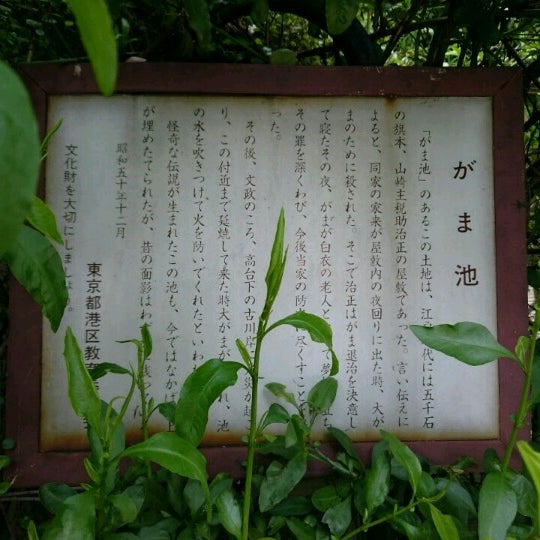 がま池
「がま池」のあるこの土地は、江 代には五千石
の旗本、山崎主税助治正の屋敷であった。言い伝えに
よると、同家の家来が屋敷内の夜回りに出た時、大が
まのために殺された。そこで治正はがま退治を決意し
て寝たその夜、がまが白衣の老人と て夢 立ち
その罪を深くわび、今後当家の防 尽くすこと
った。
その後、文政のころ、高台下の古川 災が起こ
り、この付近まで延焼して来た時大がまが れ、池
の水を吹きつけて火を防いでくれたといわ
怪奇な伝説が生まれたこの池も、今ではなかば
が埋めたてられたが、昔の面影はわず 残っ
昭和五十年十二月
文化財を大切にしましょう。
東京都港区教育